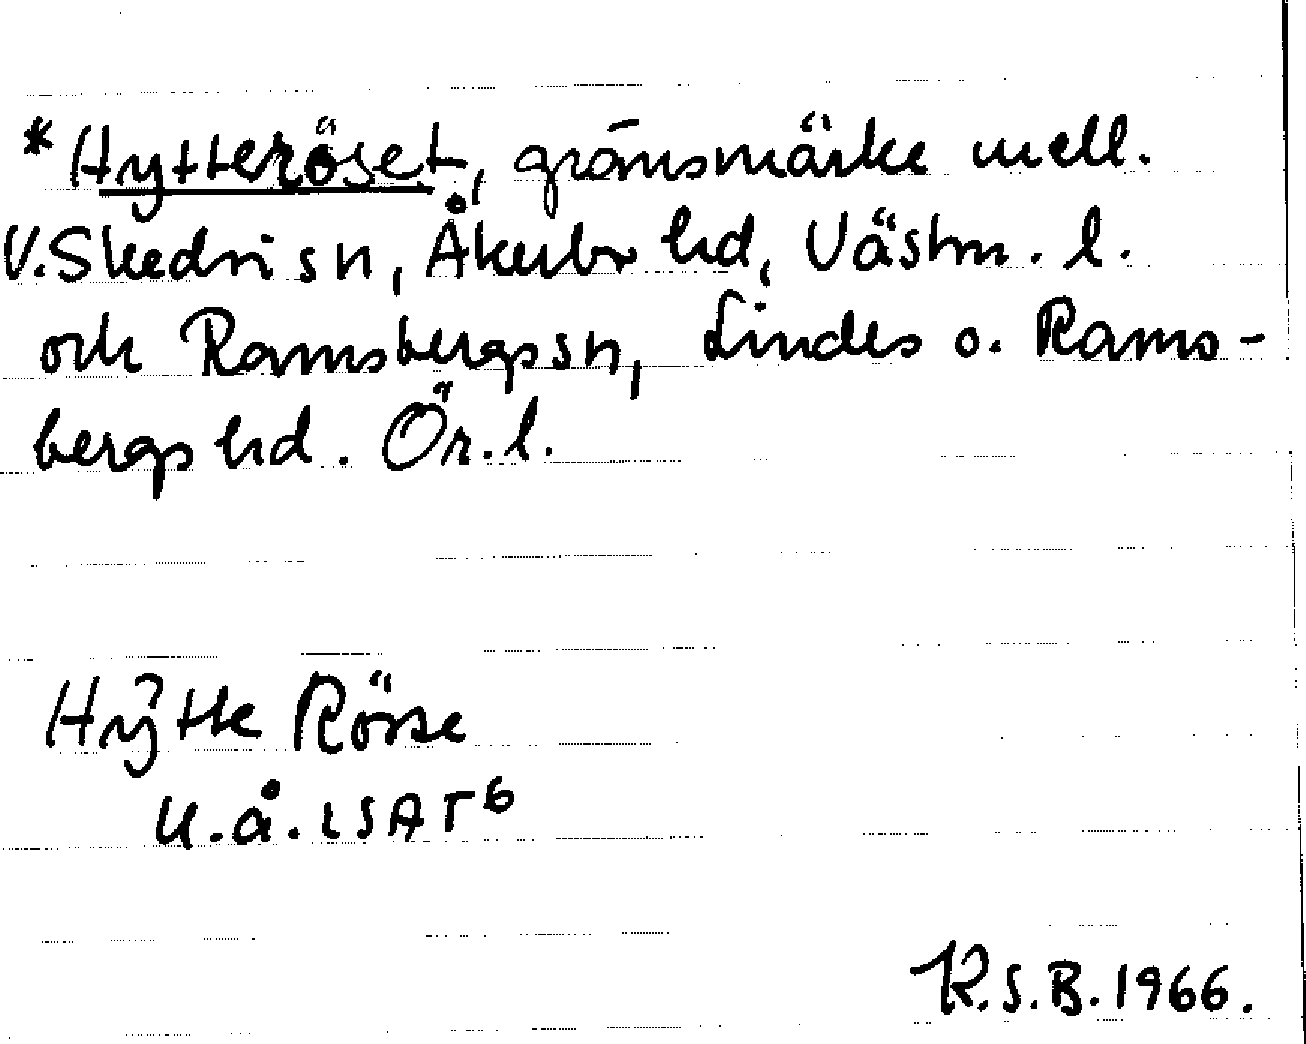 *Hytteröset, gränsmärke mell.
V.Skedvi sn, Åkerbo hd, Västm. l.
och Ramsbergs sn, Lindes o. Rams-
bergs hd. Ör. l.
Hÿtte Rösse
U.å. LSA T6
K.S.B. 1966.